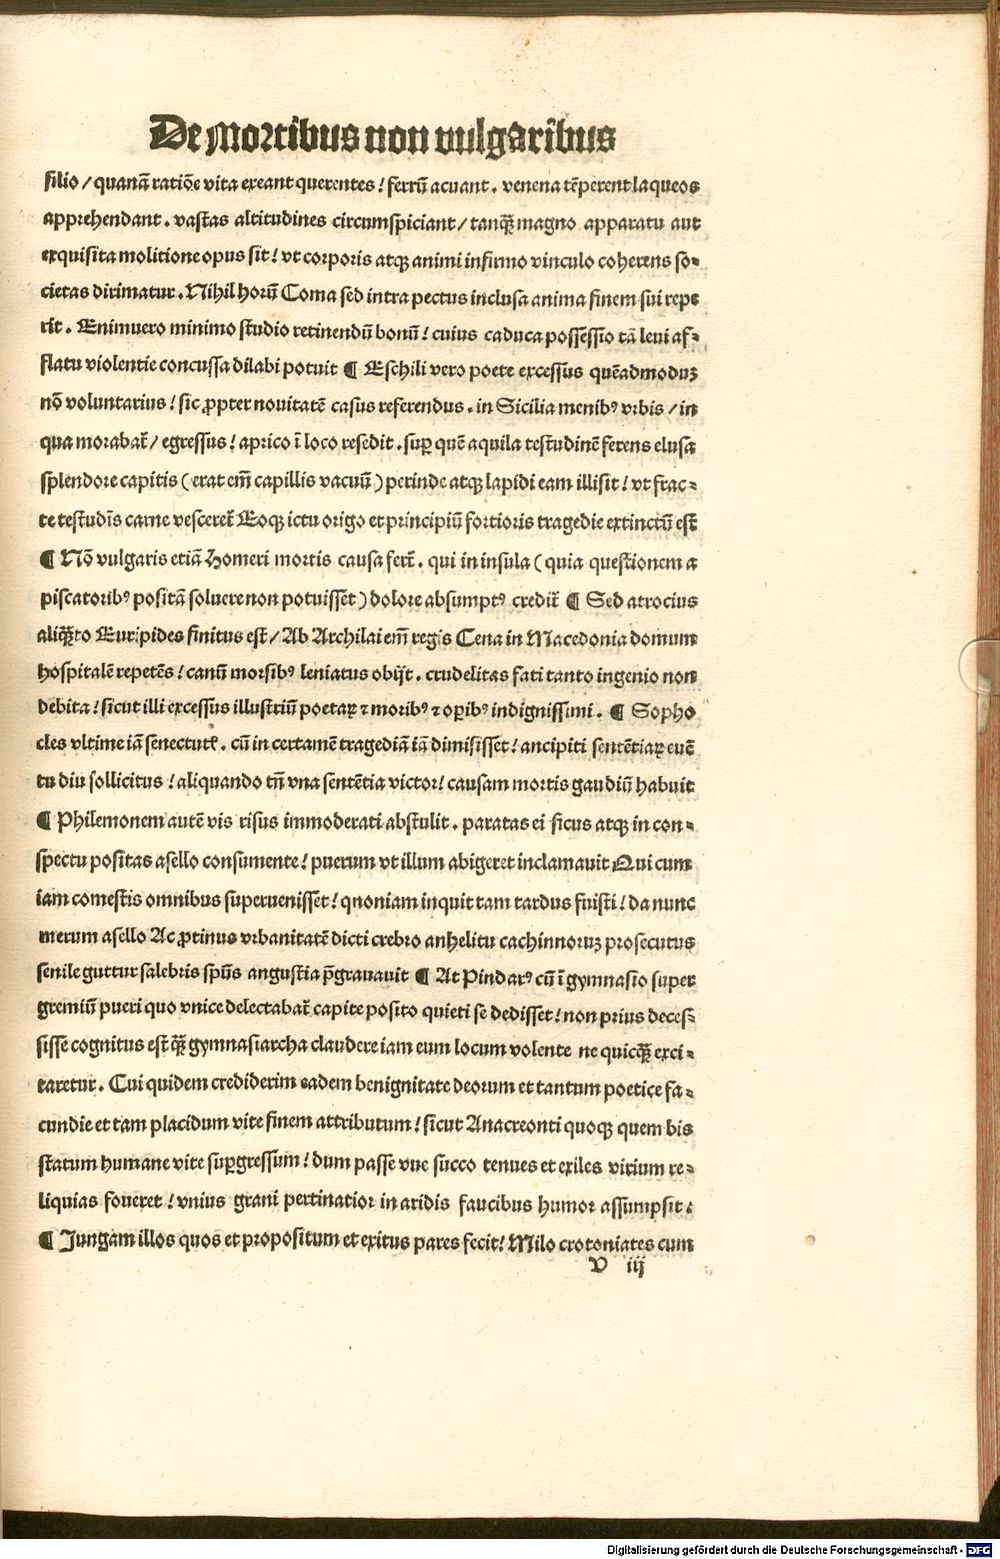 De Mortibus non vulgaribus
silio / quanā ratiōe vita exeant querentes ! ferrū acuant . venena tēperent laqueos
apprehendant . vastas altitudines circumspiciant / tanq̄ magno apparatu aut
exquisita molitione opus sit ! vt corporis atqꝫ animi infirmo vinculo coherens so⸗
cietas dirimatur . Nihil horū Coma sed intra pectus inclusa anima finem sui repe
rit . Enimuero minimo studio retinendū bonū ! cuius caduca possessio tā leui af⸗
flatu violentie concussa dilabi potuit ¶ Eschili vero poete excessus quēadmoduꝫ
nō voluntarius ! sic ꝓpter nouitatē casus referendus . in Sicilia menibꝰ vrbis / in
qua morabat̄ / egressus ! aprico ī loco resedit . suꝑ quē aquila testudinē ferens elusa
splendore capitis ( erat em̄ capillis vacuū ) perinde atqꝫ lapidi eam illisit ! vt frac⸗
te testudīs carne vesceret̄ Eoqꝫ ictu origo et principiū fortioris tragedie extinctū est̄
¶ Nō vulgaris etiā Homeri mortis causa fert̄ . qui in insula ( quia questionem a
piscatoribꝰ positā soluere non potuisset ) dolore absumptꝰ credit̄ ¶ Sed atrocius
aliq̄to Euripides finitus est / Ab Archilai em̄ regis Cena in Macedonia domum
hospitalē repetēs ! canū morsibꝰ leniatus obijt . crudelitas fati tanto ingenio non
debita ! sicut illi excessus illustriū poetaꝝ ⁊ moribꝰ ⁊ oꝑibꝰ indignissimi . ¶ Sopho
cles vltime iā senectut̄ . cū in certamē tragediā iā dimisisset ! ancipiti sentētiaꝝ euē
tu diu sollicitus ! aliquando tn̄ vna sentētia victor ! causam mortis gaudiū habuit
¶ Philemonem autē vis risus immoderati abstulit . paratas ei ficus atqꝫ in con⸗
spectu positas asello consumente ! puerum vt illum abigeret inclamauit Qui cum
iam comestis omnibus superuenisset ! qnoniam inquit tam tardus fuisti ! da nunc
merum asello Ac ꝓtinus vrbanitatē dicti crebro anhelitu cachinnoruꝫ prosecutus
senile guttur salebris spūs angustia p̄grauauit ¶ At Pindarꝰ cū ī gymnasio super
gremiū pueri quo vnice delectabat̄ capite posito quieti se dedisset ! non prius deces⸗
sisse cognitus est q̄ gymnasiarcha claudere iam eum locum volente ne quicq̄ exci⸗
taretur . Cui quidem crediderim eadem benignitate deorum et tantum poetice fa⸗
cundie et tam placidum vite finem attributum ! sicut Anacreonti quoqꝫ quem bis
statum humane vite suꝑgressum ! dum passe vue succo tenues et exiles virium re⸗
liquias foueret ! vnius grani pertinatior in aridis faucibus humor assumpsit .
¶ Jungam illos quos et propositum et exitus pares fecit ! Milo crotoniates cum
v iij
Digitalisierung gefördert durch die Deutsche Forschungsgemeinschaft - DFG